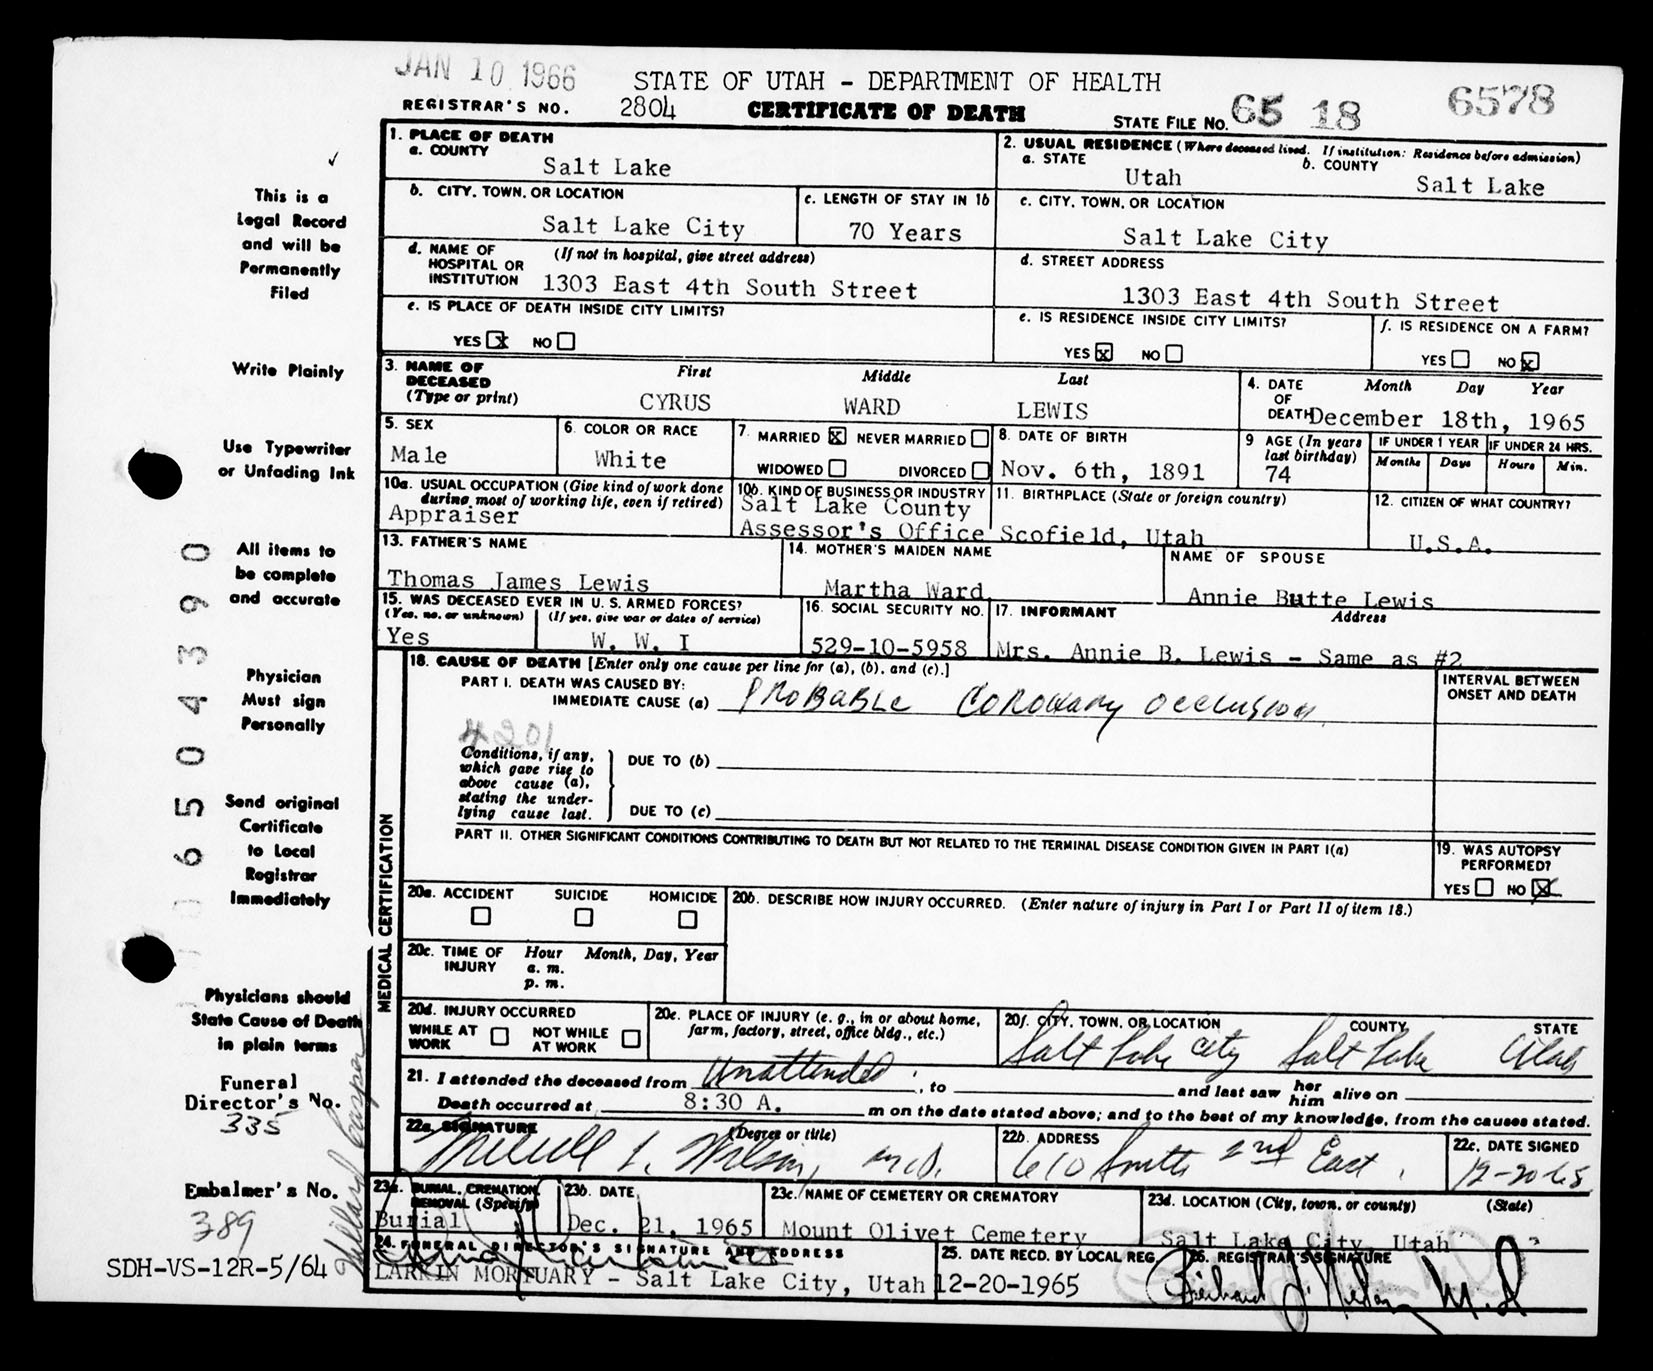 JAN 10 1966
STATE OF UTAH - DEPARTMENT OF HEALTH
REGISTRAR'S NO. 2804 CERTIFICATE OF DEATH STATE FILE NO. 65 18 6578
1. PLACE OF DEATH
a. COUNTY
Salt Lake
2. USUAL RESIDENCE (Where deceased lived. If institution: Residence before admission)
a. STATE b. COUNTY
Utah Salt Lake
b. CITY, TOWN, OR LOCATION
Salt Lake City
c. LENGTH OF STAY IN 1b
70 Years
c. CITY, TOWN, OR LOCATION
Salt Lake City
d. NAME OF HOSPITAL OR INSTITUTION (If not in hospital, give street address)
1303 East 4th South Street
d. STREET ADDRESS
1303 East 4th South Street
e. IS PLACE OF DEATH INSIDE CITY LIMITS?
YES x NO
e. IS RESIDENCE INSIDE CITY LIMITS?
YES x NO
f. IS RESIDENCE ON A FARM?
YES NO x
3. NAME OF DECEASED (Type or print)
First Middle Last
CYRUS WARD LEWIS
4. DATE OF DEATH Month Day Year
December 18th, 1965
5. SEX
Male
6. COLOR OR RACE
White
7. MARRIED x NEVER MARRIED
WIDOWED DIVORCED
8. DATE OF BIRTH
Nov. 6th, 1891
9 AGE (In years last birthday)
74
IF UNDER 1 YEAR
Months Days
IF UNDER 24 HRS.
Hours Min.
10a. USUAL OCCUPATION (Give kind of work done during most of working life, even if retired)
Appraiser
10b. KIND OF BUSINESS OR INDUSTRY
Salt Lake County
Assessor's Office
11. BIRTHPLACE (State or foreign country)
Scofield, Utah
12. CITIZEN OF WHAT COUNTRY?
U.S.A.
13. FATHER'S NAME
Thomas James Lewis
14. MOTHER'S MAIDEN NAME
Martha Ward
NAME OF SPOUSE
Annie Butte Lewis
15. WAS DECEASED EVER IN U.S. ARMED FORCES?
(Yes, no, or unknown) (If yes, give war or dates of service)
Yes W. W. I
16. SOCIAL SECURITY NO.
529-10-5958
17. INFORMANT Address
Mrs. Annie B. Lewis - Same as #2
MEDICAL CERTIFICATION
18. CAUSE OF DEATH [Enter only one cause per line for (a), (b), and (c).]
PART I. DEATH WAS CAUSED BY:
IMMEDIATE CAUSE (a) PROBABLE CORONARY OCCLUSION
INTERVAL BETWEEN ONSET AND DEATH
4201
Conditions, if any, which gave rise to above cause (a), stating the underlying cause last.
DUE TO (b)
DUE TO (c)
PART II. OTHER SIGNIFICANT CONDITIONS CONTRIBUTING TO DEATH BUT NOT RELATED TO THE TERMINAL DISEASE CONDITION GIVEN IN PART I(a)
19. WAS AUTOPSY PERFORMED?
YES NO X
20a. ACCIDENT SUICIDE HOMICIDE
20b. DESCRIBE HOW INJURY OCCURRED. (Enter nature of injury in Part I or Part II of item 18.)
20c. TIME OF INJURY Hour Month, Day, Year
a. m.
p. m.
20d. INJURY OCCURRED
WHILE AT WORK NOT WHILE AT WORK
20e. PLACE OF INJURY (e. g., in or about home, farm, factory, street, office bldg., etc.)
20f. CITY, TOWN, OR LOCATION COUNTY STATE
Salt Lake City Salt Lake Utah
21. I attended the deceased from Unattended, to and last saw her him alive on
Death occurred at 8:30 A. m on the date stated above; and to the best of my knowledge, from the causes stated.
22a. SIGNATURE (Degree or title)
Merrill L. Wilson, M.D.
22b. ADDRESS
610 South 2nd East.
22c. DATE SIGNED
12-20-65
23a. BURIAL, CREMATION, REMOVAL (Specify)
Burial
23b. DATE
Dec. 21, 1965
23c. NAME OF CEMETERY OR CREMATORY
Mount Olivet Cemetery
23d. LOCATION (City, town, or county) (State)
Salt Lake City, Utah
24. FUNERAL DIRECTOR'S SIGNATURE AND ADDRESS
LARKIN MORTUARY - Salt Lake City, Utah
25. DATE RECD. BY LOCAL REG.
12-20-1965
26. REGISTRAR'S SIGNATURE
M.D
This is a
Legal Record
and will be
Permanently
Filed
Write Plainly
Use Typewriter
or Unfading Ink
All items to
be complete
and accurate
Physician
Must sign
Personally
Send original
Certificate
to Local
Registrar
Immediately
Physicians should
State Cause of Death
in plain terms
Funeral
Director's No.
335
Embalmer's No.
389
SDH-VS-12R-5/64
06504390